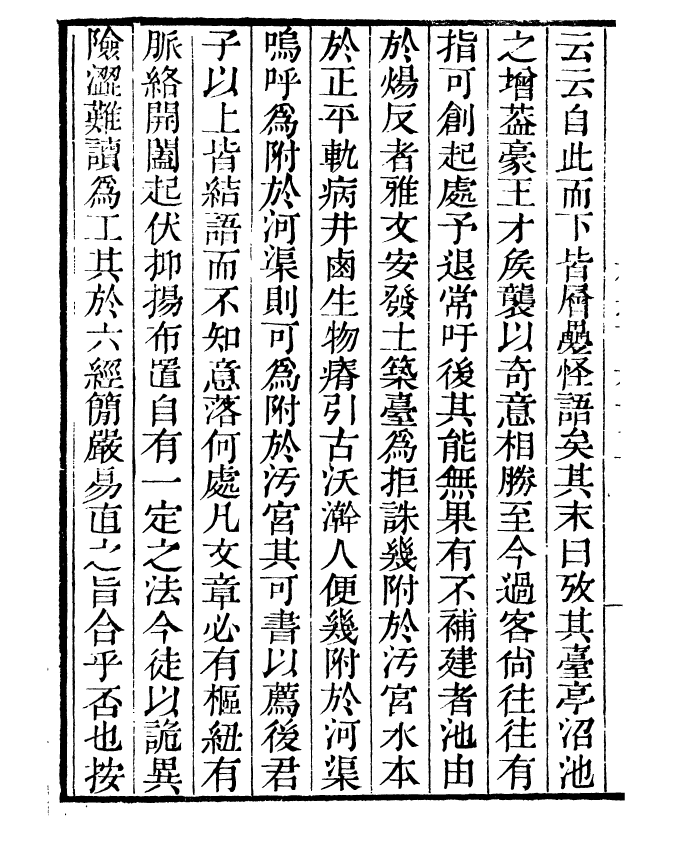 云云自此而下皆層疉怪語矣其末曰攷其臺亭沼池
之增葢豪王才矦襲以奇意相勝至今過客尙往往有
指可創起處予退常吁後其能無果有不補建者池由
於煬反者雅文安發土築臺爲拒誅幾附於汚宮水本
於正平軌病井鹵生物瘠引古沃澣人便幾附於河渠
嗚呼爲附於河渠則可爲附於汚宮其可書以薦後君
子以上皆結語而不知意落何處凡文章必有樞紐有
脈絡開闔起伏抑揚布置自有一定之法今徒以詭異
險澀難讀爲工其於六經簡嚴易直之旨合乎否也按